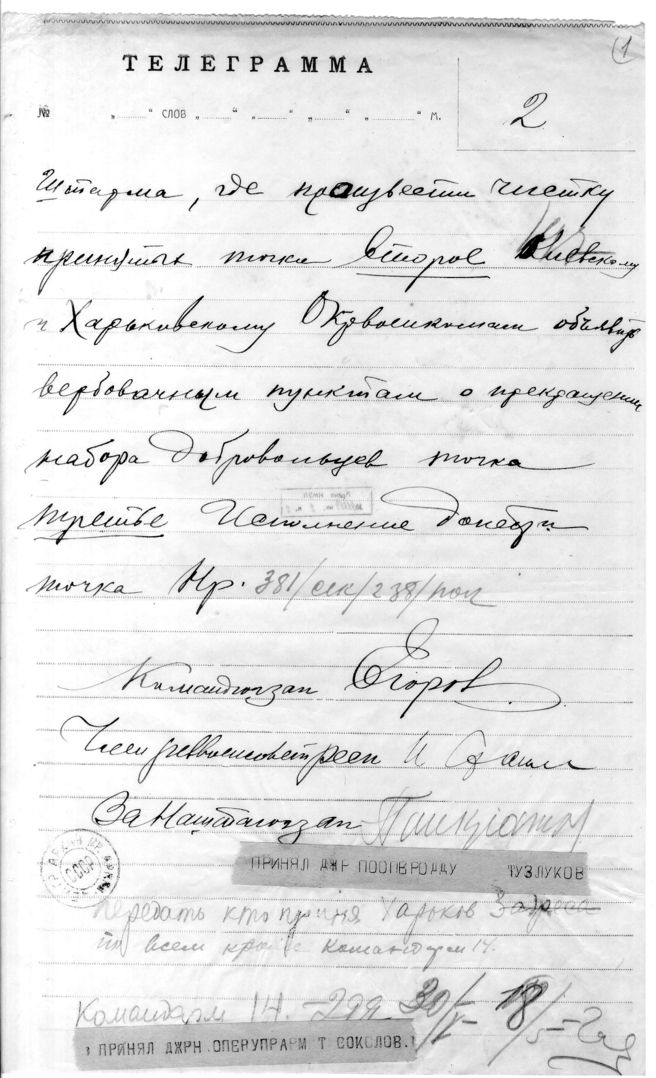 1
ТЕЛЕГРАММА
2
№ „ “ слов „ “ „ “ „ “ „ “ м.
Штарма, где произвести чистку
принятых точка Второе Киевскому
и Харьковскому Окрвоенкомам объявить
вербовачным пунктам о прекращении
набора добровольцев точка
третье Исполнение донести
точка Нр. 381/сек/238/пол
Командюгзап Егоров
Член реввоенсовета И
За Наштаюгзап
СССР
ПРИНЯЛ ДЖР ПООПЕРОДДУ ТУЗЛУКОВ
Передать кто приня Харьков
по всем кроме командарм 14.
Командарм 14.
ПРИНЯЛ ДЖРН.ОПЕРУПРАРМ Т СОКОЛОВ.